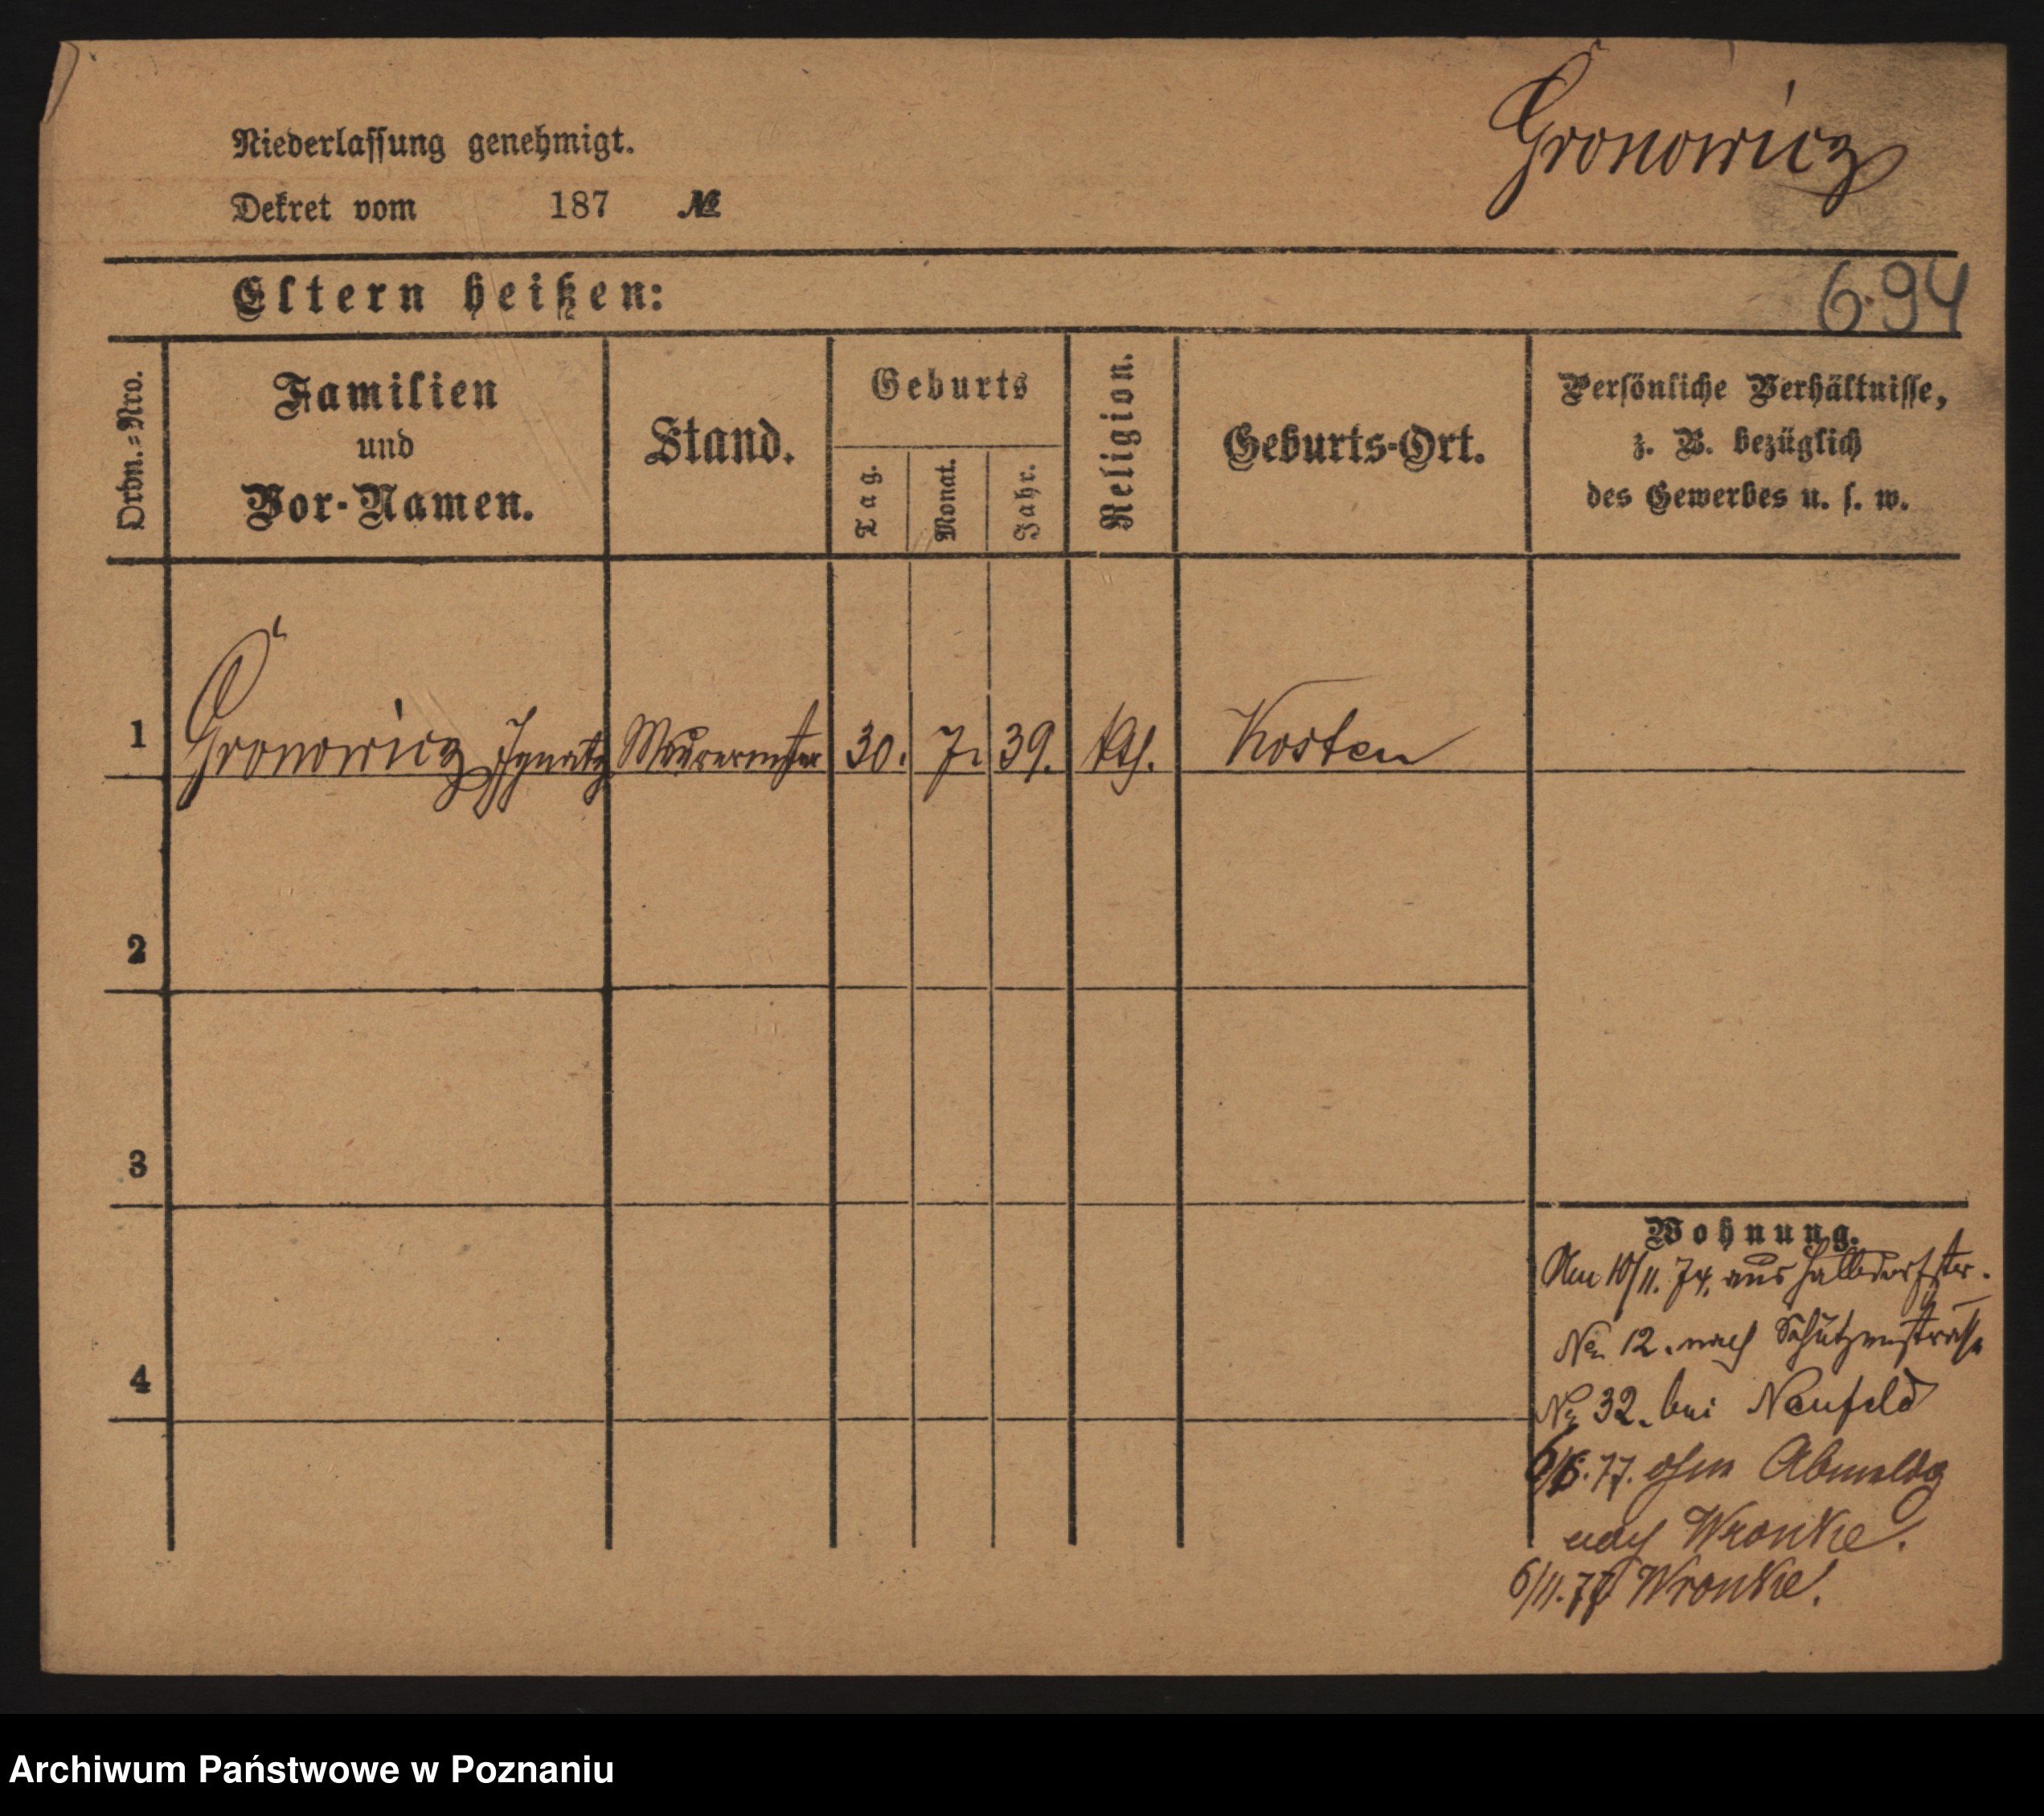 Gronowicz
Niederlassung genehmigt.
Dekret vom 187 №
694
Eltern heißen:
Ordn.=Nro.
Familien
und
Vor-Namen.
Stand.
Geburts
Tag.
Monat.
Jahr.
Religion.
Geburts-Ort.
Persönliche Verhältnisse,
z. B. bezüglich
des Gewerbes u. s. w.
1 Gronowicz Ignatz 30. 7. 39. kth. Kosten
2
3
4
Wohnung.
Am 10/11. 74. aus Halbdorfstr.
No 12. nach Schützenstrasse
No 32. bei Neufeld
77. ohne Abmeldg
nach Wronke.
6/11. 77 Wronke!
Archiwum Państwowe w Poznaniu